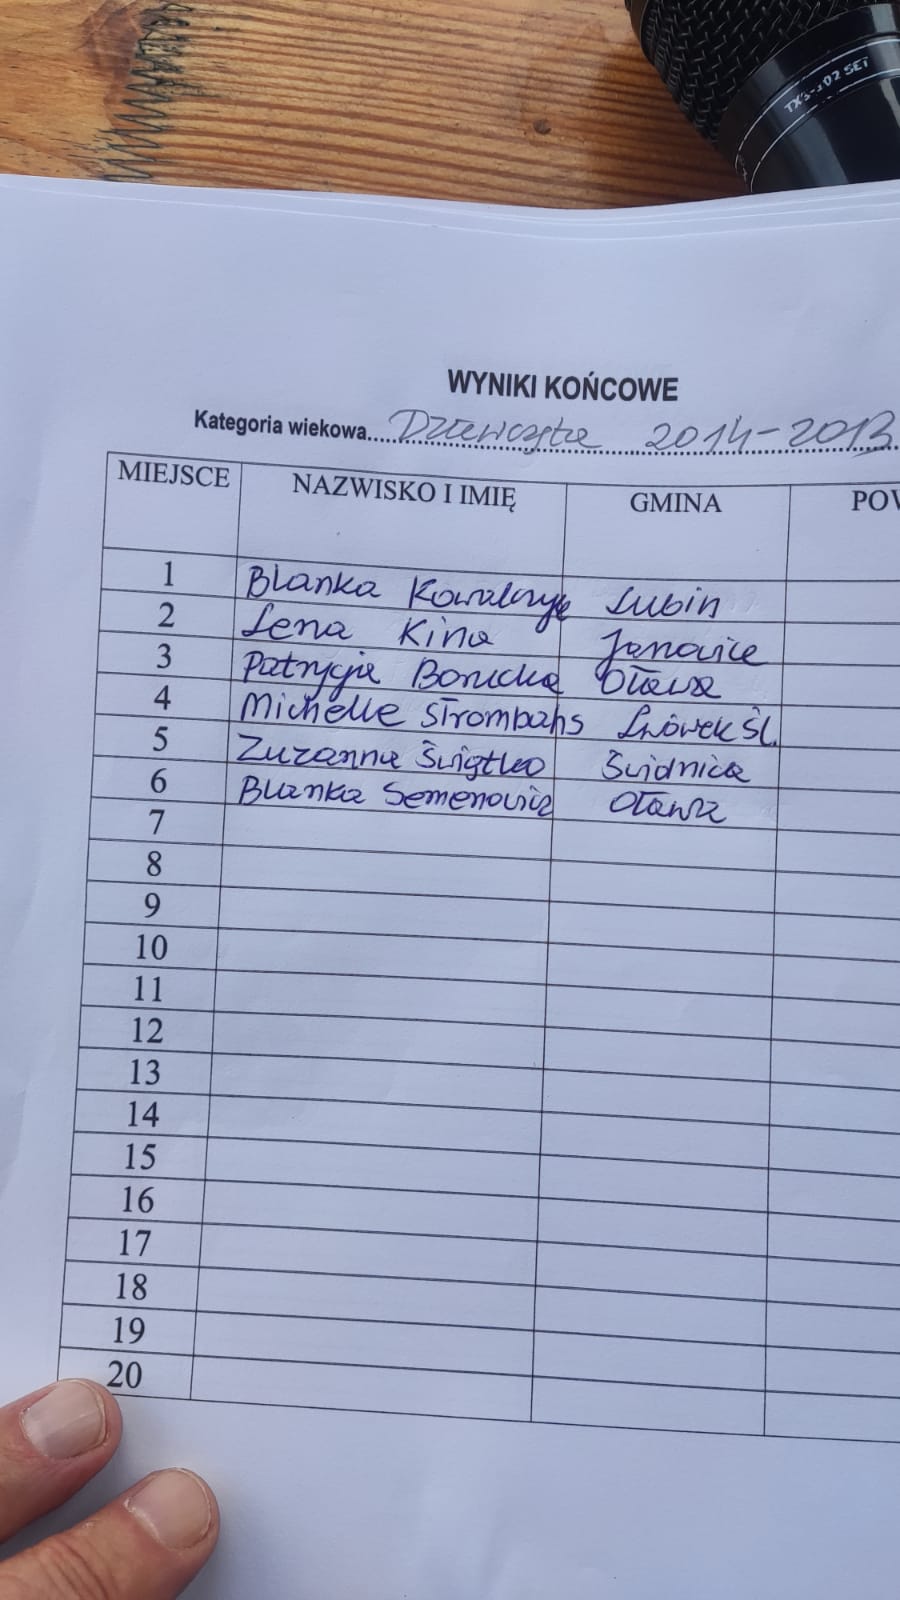 TX3-102 SET
WYNIKI KOŃCOWE
Kategoria wiekowa.....Dziewczęta 2014-2013
MIEJSCE NAZWISKO I IMIĘ GMINA POW
1 Blanka Kowalczyk Lubin
2 Lena Kina Janowice
3 Patrycja Bonicka Oława
4 Michelle Strombahs Lwówek Śl.
5 Zuzanna Świątko Świdnica
6 Blanka Semenowicz Oława
7
8
9
10
11
12
13
14
15
16
17
18
19
20